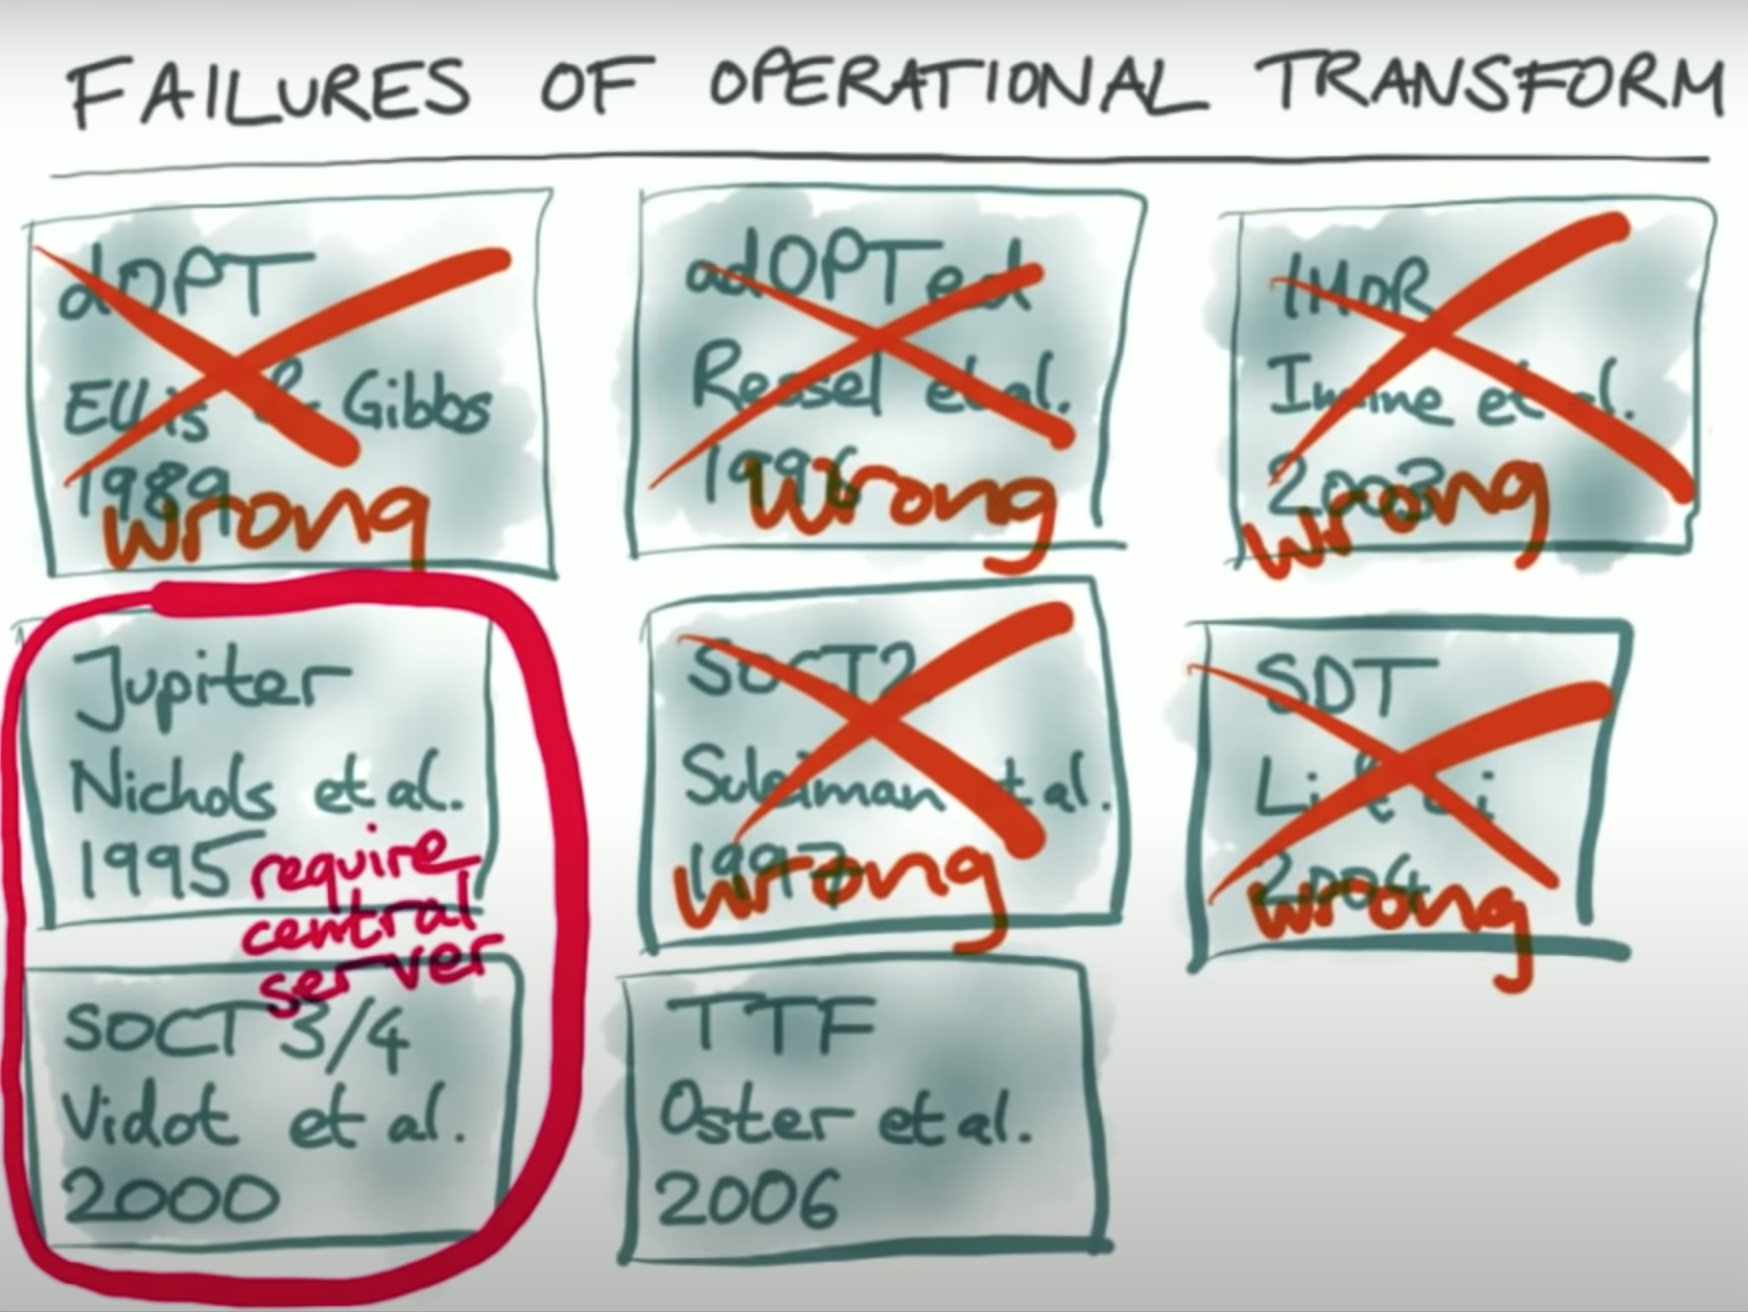 FAILURES OF OPERATIONAL TRANSFORM
dOPT
Ellis & Gibbs
1989
wrong
adOPTed
Ressel et al.
1996
wrong
IMOR
Imine et al.
2003
wrong
Jupiter
Nichols et al.
1995
require
central
server
SOCT2
Suleiman et al.
1997
wrong
SDT
Li & Li
2004
wrong
SOCT 3/4
Vidot et al.
2000
TTF
Oster et al.
2006